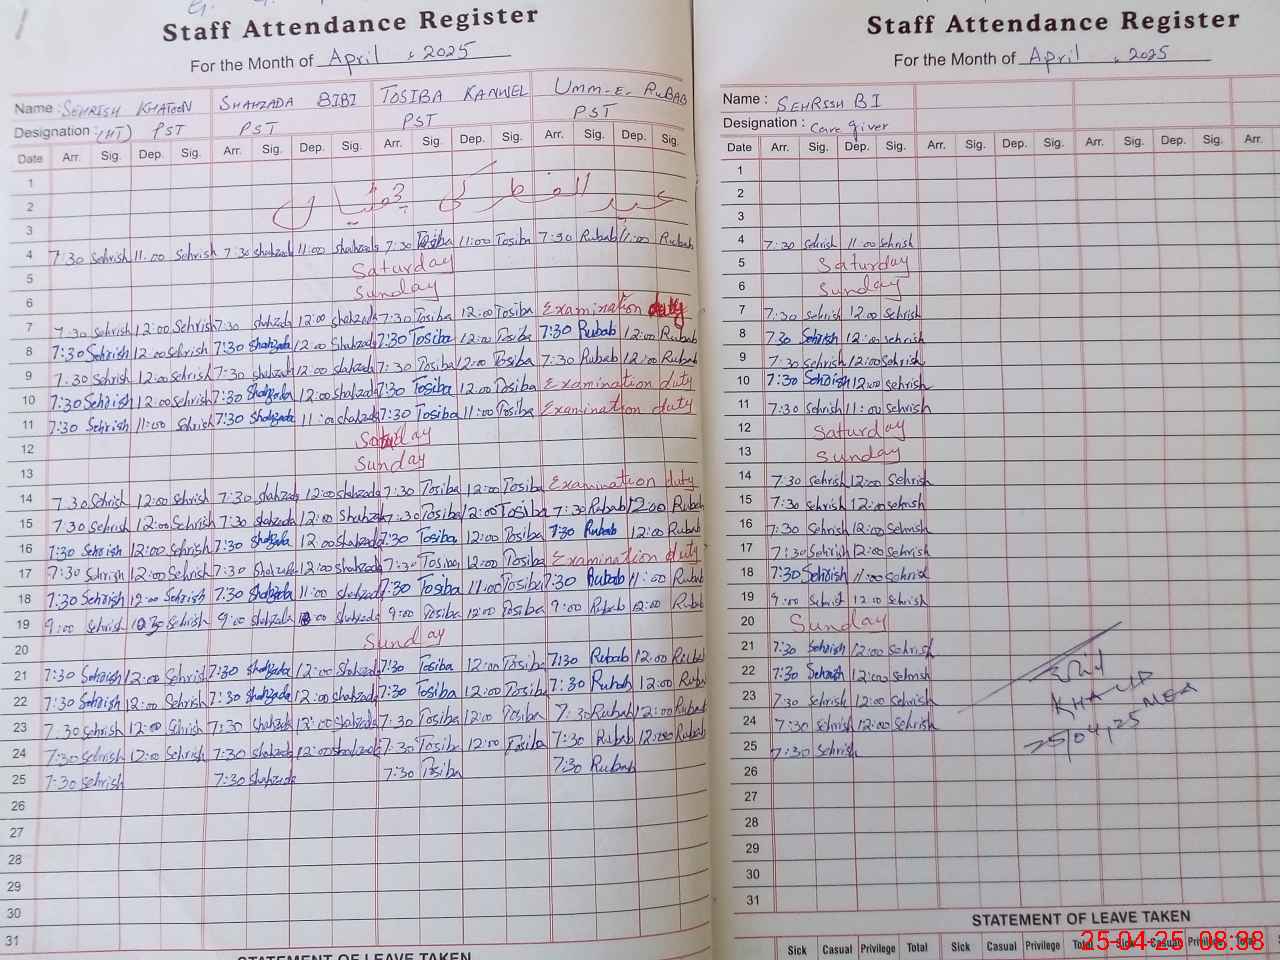 Staff Attendance Register
For the Month of April, 2025
Name : SEHRISH KHATOON SHAHZADA BIBI TOSIBA KANWEL UMM-E-RUBAB
Designation : (HT) PST PST PST PST
Date Arr. Sig. Dep. Sig. Arr. Sig. Dep. Sig. Arr. Sig. Dep. Sig. Arr. Sig. Dep. Sig.
1
2 عید الفطر کی چھٹیاں
3
4 7:30 Sehrish 11:00 Sehrish 7:30 Shahzada 11:00 Shahzada 7:30 Tosiba 11:00 Tosiba 7:30 Rubab 11:00 Rubab
5 Saturday
6 Sunday
7 7:30 Sehrish 12:00 Sehrish 7:30 Shahzada 12:00 Shahzada 7:30 Tosiba 12:00 Tosiba Examination duty
8 7:30 Sehrish 12:00 Sehrish 7:30 Shahzada 12:00 Shahzada 7:30 Tosiba 12:00 Tosiba 7:30 Rubab 12:00 Rubab
9 7:30 Sehrish 12:00 Sehrish 7:30 Shahzada 12:00 Shahzada 7:30 Tosiba 12:00 Tosiba 7:30 Rubab 12:00 Rubab
10 7:30 Sehrish 12:00 Sehrish 7:30 Shahzada 12:00 Shahzada 7:30 Tosiba 12:00 Tosiba Examination duty
11 7:30 Sehrish 11:00 Sehrish 7:30 Shahzada 11:00 Shahzada 7:30 Tosiba 11:00 Tosiba Examination duty
12 Saturday
13 Sunday
14 7:30 Sehrish 12:00 Sehrish 7:30 Shahzada 12:00 Shahzada 7:30 Tosiba 12:00 Tosiba Examination duty
15 7:30 Sehrish 12:00 Sehrish 7:30 Shahzada 12:00 Shahzada 7:30 Tosiba 12:00 Tosiba 7:30 Rubab 12:00 Rubab
16 7:30 Sehrish 12:00 Sehrish 7:30 Shahzada 12:00 Shahzada 7:30 Tosiba 12:00 Tosiba 7:30 Rubab 12:00 Rubab
17 7:30 Sehrish 12:00 Sehrish 7:30 Shahzada 12:00 Shahzada 7:30 Tosiba 12:00 Tosiba Examination duty
18 7:30 Sehrish 12:00 Sehrish 7:30 Shahzada 11:00 Shahzada 7:30 Tosiba 11:00 Tosiba 7:30 Rubab 11:00 Rubab
19 9:00 Sehrish Sehrish 9:00 Shahzada Shahzada 9:00 Tosiba 12:00 Tosiba 9:00 Rubab 12:00 Rubab
20 Sunday
21 7:30 Sehrish 12:00 Sehrish 7:30 Shahzada 12:00 Shahzada 7:30 Tosiba 12:00 Tosiba 7:30 Rubab 12:00 Rubab
22 7:30 Sehrish 12:00 Sehrish 7:30 Shahzada 12:00 Shahzada 7:30 Tosiba 12:00 Tosiba 7:30 Rubab 12:00 Rubab
23 7:30 Sehrish 12:00 Sehrish 7:30 Shahzada 12:00 Shahzada 7:30 Tosiba 12:00 Tosiba 7:30 Rubab 12:00 Rubab
24 7:30 Sehrish 12:00 Sehrish 7:30 Shahzada 12:00 Shahzada 7:30 Tosiba 12:00 Tosiba 7:30 Rubab 12:00 Rubab
25 7:30 Sehrish 7:30 Shahzada 7:30 Tosiba 7:30 Rubab
26
27
28
29
30
31
STATEMENT OF LEAVE TAKEN
Staff Attendance Register
For the Month of April, 2025
Name : SEHRSSH BI
Designation : Care giver
Date Arr. Sig. Dep. Sig. Arr. Sig. Dep. Sig. Arr. Sig. Dep. Sig. Arr.
1
2
3
4 7:30 Sehrish 11:00 Sehrish
5 Saturday
6 Sunday
7 7:30 Sehrish 12:00 Sehrish
8 7:30 Sehrish 12:00 Sehrish
9 7:30 Sehrish 12:00 Sehrish
10 7:30 Sehrish 12:00 Sehrish
11 7:30 Sehrish 11:00 Sehrish
12 Saturday
13 Sunday
14 7:30 Sehrish 12:00 Sehrish
15 7:30 Sehrish 12:00 Sehrish
16 7:30 Sehrish 12:00 Sehrish
17 7:30 Sehrish 12:00 Sehrish
18 7:30 Sehrish 11:00 Sehrish
19 9:00 Sehrish 12:00 Sehrish
20 Sunday
21 7:30 Sehrish 12:00 Sehrish
22 7:30 Sehrish 12:00 Sehrish
23 7:30 Sehrish 12:00 Sehrish
24 7:30 Sehrish 12:00 Sehrish
25 7:30 Sehrish
26
27
28
29
30
31
MEA
25/04,25
STATEMENT OF LEAVE TAKEN
Sick Casual Privilege Total Sick Casual Privilege Total Sick Casual Privilege Total
25-04-25 08:38